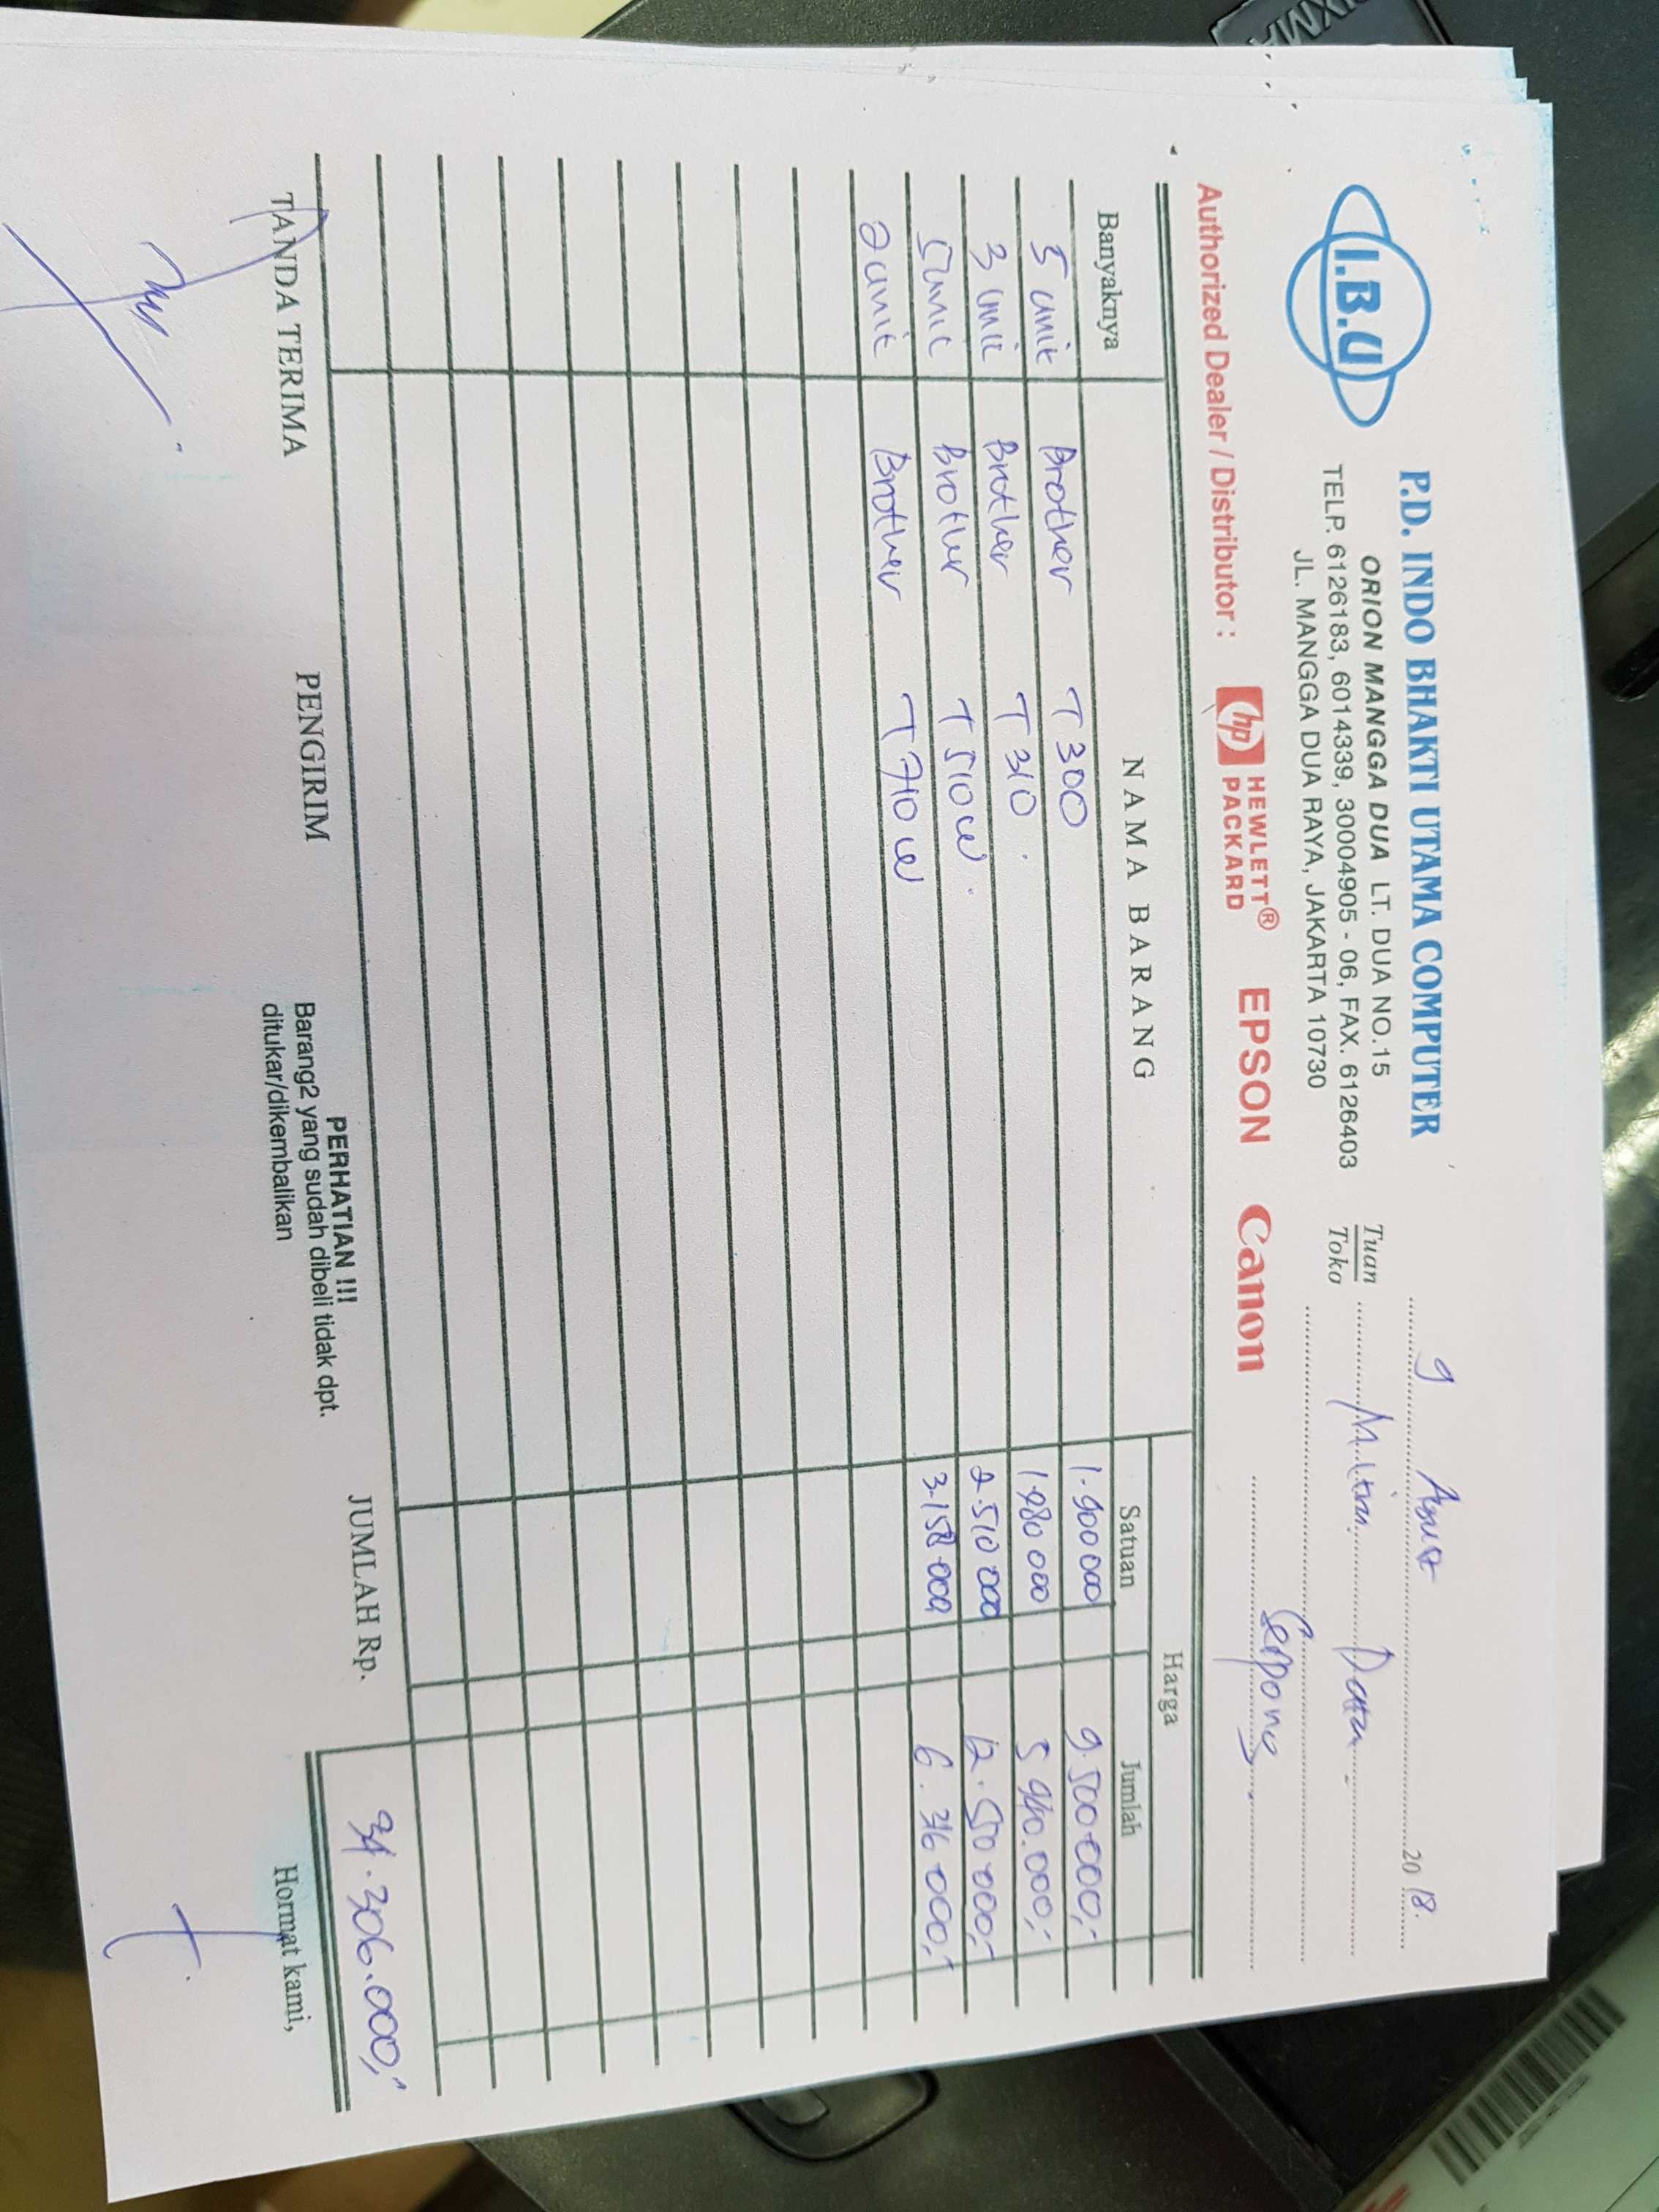 I.B.U
P.D. INDO BHAKTI UTAMA COMPUTER
ORION MANGGA DUA LT. DUA NO.15
TELP. 6126183, 6014339, 30004905 - 06, FAX. 6126403
JL. MANGGA DUA RAYA, JAKARTA 10730
9 2018.
Tuan
Toko
Serpong.
Authorized Dealer / Distributor : hp HEWLETT® PACKARD EPSON Canon
Banyaknya NAMA BARANG Harga
Satuan Jumlah
5 unit Brother T300 1.900 000 9.500.000,-
3 unit Brother T310. 1.980 000 5 940.000,-
5 unit Brother T510W. 2.510 000 12.550 000,-
2 unit Brother T710W 3.158 000 6.316 000,-
JUMLAH Rp. 34.306.000,-
TANDA TERIMA PENGIRIM
PERHATIAN !!!
Barang2 yang sudah dibeli tidak dpt.
ditukar/dikembalikan
Hormat kami,
PIXMA